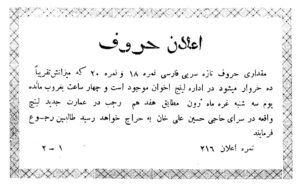 اعلان حروف
مقداری حروف تازه سربی فارسی نمره ۱۸ و نمره ۲۰ که میزانش تقریباً
ده خروار میشود در اداره لینج اخوان موجود است و چهار ساعت بغروب مانده
یوم سه شنبه غره ماه ژون مطابق هفد هم رجب در عمارت جدید لینج
واقعه در سرای حاجی حسین علی خان به حراج خواهد رسید طالبین رجوع
فرمایند
نمره اعلان ۲۱۶ ۱ – ۲